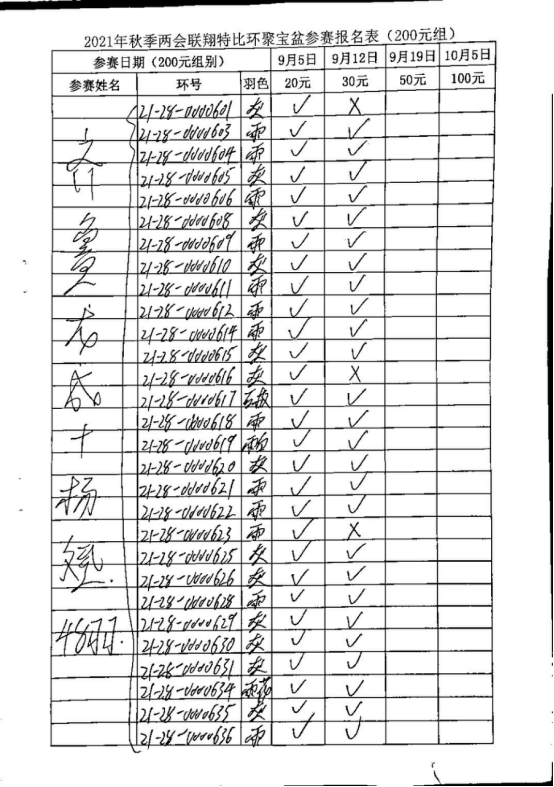 2021年秋季两会联翔特比环聚宝盆参赛报名表（200元组）
参赛日期（200元组别） 9月5日 9月12日 9月19日 10月5日
参赛姓名 环号 羽色 20元 30元 50元 100元
21-28-0000601 灰 ✓ X
21-28-0000603 雨 ✓ ✓
21-28-0000604 雨 ✓ ✓
21-28-0000605 灰 ✓ ✓
21-28-0000606 雨 ✓ ✓
21-28-0000608 灰 ✓ ✓
21-28-0000609 雨 ✓ ✓
21-28-0000610 灰 ✓ ✓
21-28-0000611 雨 ✓ ✓
21-28-0000612 雨 ✓ ✓
21-28-0000614 雨 ✓ ✓
21-28-0000615 灰 ✓ ✓
21-28-0000616 灰 ✓ X
21-28-0000617 ✓ ✓
21-28-0000618 雨 ✓ ✓
21-28-0000619 ✓ ✓
21-28-0000620 灰 ✓ ✓
21-28-0000621 雨 ✓ ✓
21-28-0000622 雨 ✓ ✓
21-28-0000623 雨 ✓ X
21-28-0000625 灰 ✓ ✓
21-28-0000626 灰 ✓ ✓
21-28-0000628 雨 ✓ ✓
21-28-0000629 灰 ✓ ✓
21-28-0000630 灰 ✓ ✓
21-28-0000631 灰 ✓ ✓
21-28-0000634 雨花 ✓ ✓
21-28-0000635 灰 ✓ ✓
21-28-0000636 雨 ✓ ✓